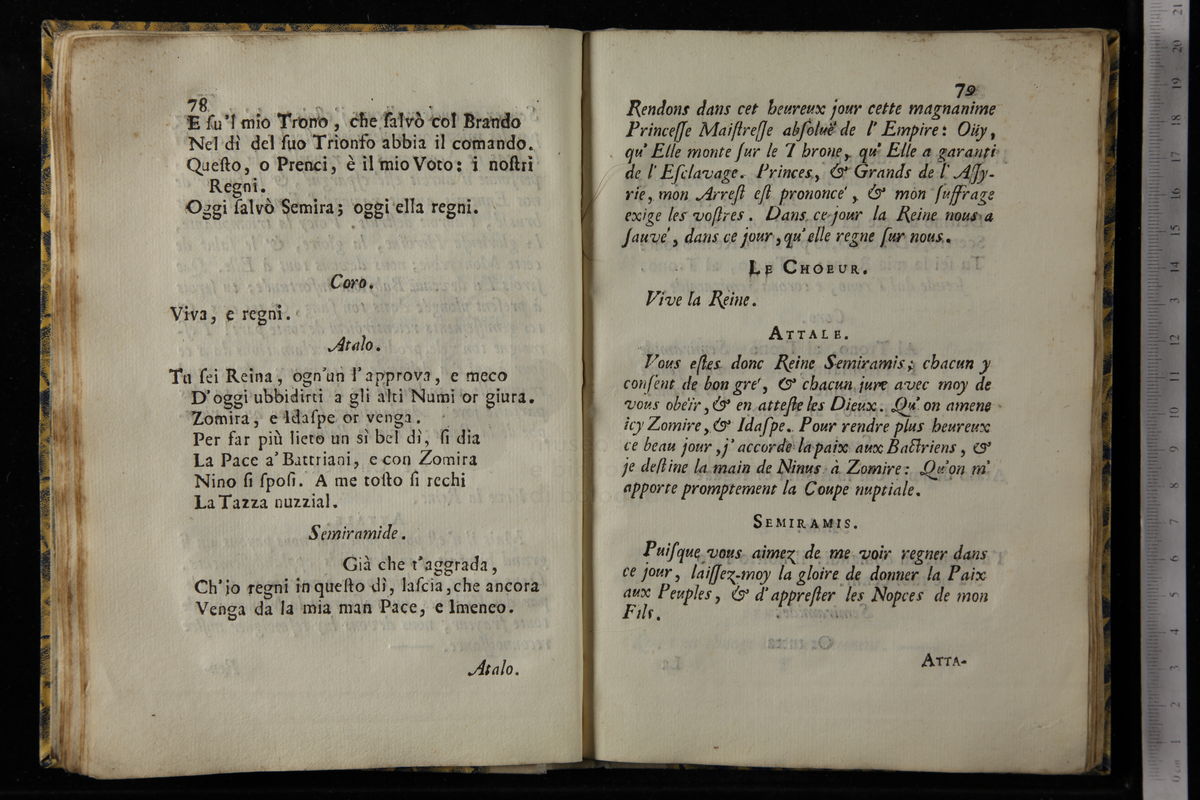 78
E ſu'l mio Trono, che ſalvò col Brando
Nel dì del ſuo Trionfo abbia il comando.
Queſto, o Prenci, è il mio Voto: i noſtri
Regni.
Oggi ſalvò Semira; oggi ella regni.
Coro.
Viva, e regni.
Atalo.
Tu ſei Reina, ogn'un l'approva, e meco
D'oggi ubbidirti a gli alti Numi or giura.
Zomira, e Idaſpe or venga.
Per far più lieto un sì bel dì, ſi dia
La Pace a' Battriani, e con Zomira
Nino ſi ſpoſi. A me toſto ſi rechi
La Tazza nuzzial.
Semiramide.
Già che t'aggrada,
Ch'io regni in queſto dì, laſcia, che ancora
Venga da la mia man Pace, e Imeneo.
Atalo.
79
Rendons dans cet heureux jour cette magnanime
Princeſſe Maiſtreſſe abſoluë de l'Empire: Oüy,
qu'Elle monte ſur le Throne, qu'Elle a garanti
de l'Eſclavage. Princes, & Grands de l'Aſſy-
rie, mon Arreſt eſt prononcé, & mon ſuffrage
exige les voſtres. Dans ce jour la Reine nous a
ſauvé, dans ce jour, qu'elle regne ſur nous.
LE CHOEUR.
Vive la Reine.
ATTALE.
Vous eſtes donc Reine Semiramis; chacun y
conſent de bon gré, & chacun jure avec moy de
vous obéir, & en atteſte les Dieux. Qu'on amene
icy Zomire, & Idaſpe. Pour rendre plus heureux
ce beau jour, j'accorde la paix aux Bactriens, &
je deſtine la main de Ninus à Zomire: Qu'on m'
apporte promptement la Coupe nuptiale.
SEMIRAMIS.
Puiſque vous aimez de me voir regner dans
ce jour, laiſſez-moy la gloire de donner la Paix
aux Peuples, & d'appreſter les Nopces de mon
Fils.
ATTA-